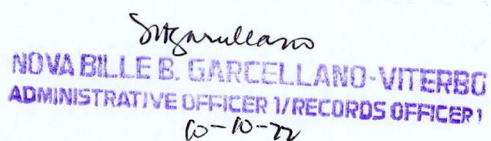 NOVA BILLE B. GARCELLANO-VITERBO
ADMINISTRATIVE OFFICER 1/RECORDS OFFICER 1
10-10-22